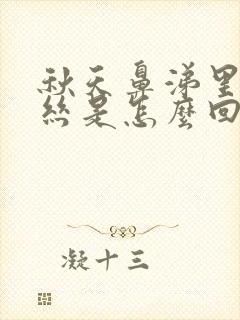 秋天鼻涕里
絲是怎麼回
凝十三